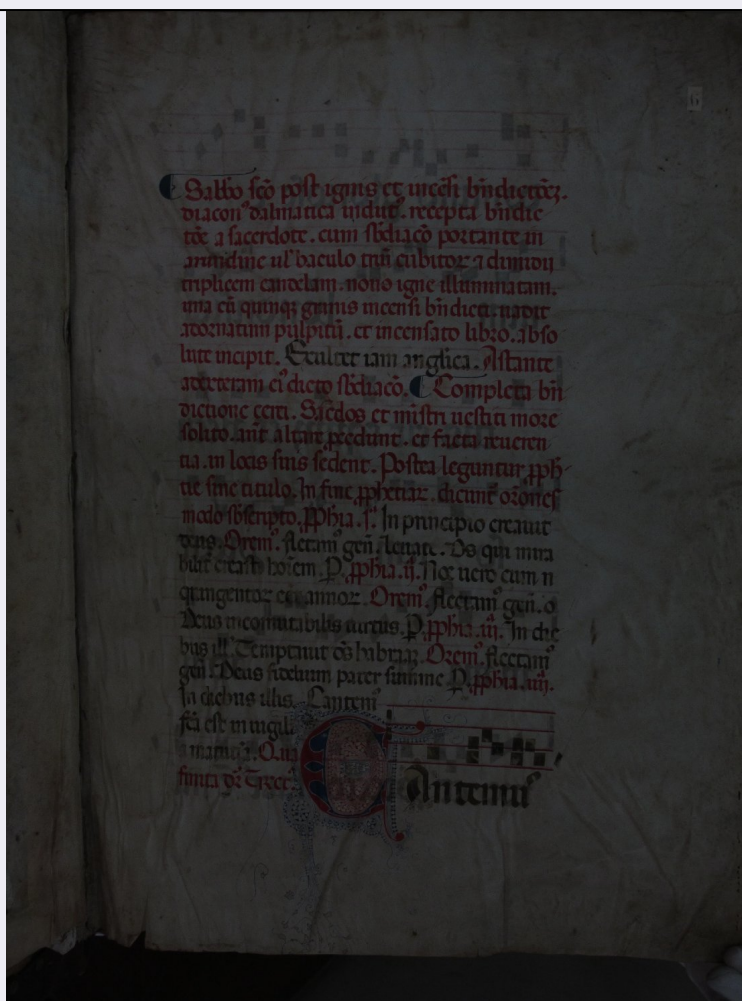 6
Sabbo sco post ignis et incesi bndictoez.
diacon⁹ dalmatica indut⁹. recepta bndic
toe a sacerdote. cum sbdiaco portante in
arundine ul' baculo triu cubitoꝝ ⁊ dimidii
triplicem candelam. nouo igne illuminatam.
una cu quinqꝫ granis incensi bndicti. uadit
adornatum pulpitu. et incensato libro. abso
lute incipit. Exultet iam anglica. Astante
ad dexteram ei⁹ dicto sbdiaco. Completa bn
dictione cerei. Sacdos et mistri uestiti more
solito. ant altare pcedunt. et facta reueren
tia. in locis suis sedent. Postea leguntur pph
tie sine titulo. In fine pphetiaꝝ. dicunt orones
modo sbscripto. Pphia. j. In principio creauit
deus. Orem⁹. flectam⁹ gen. leuate. Ds qui mira
bilit creasti hoiem. P. pphia. ij. Noe uero cum
qingentoꝝ eet annoꝝ. Orem⁹. flectam⁹ gen. o
Deus incomutabilis uirtus. P. pphia. iij. In die
bus ill'. Temptauit ds habraaz. Orem⁹. flectam⁹
gen. Deus fidelium pater summe. P. pphia. iiij.
In diebus illis. Cantem⁹
fca est in uigili
a matutia. Qua
finita dr Tract⁹.
Cantemus